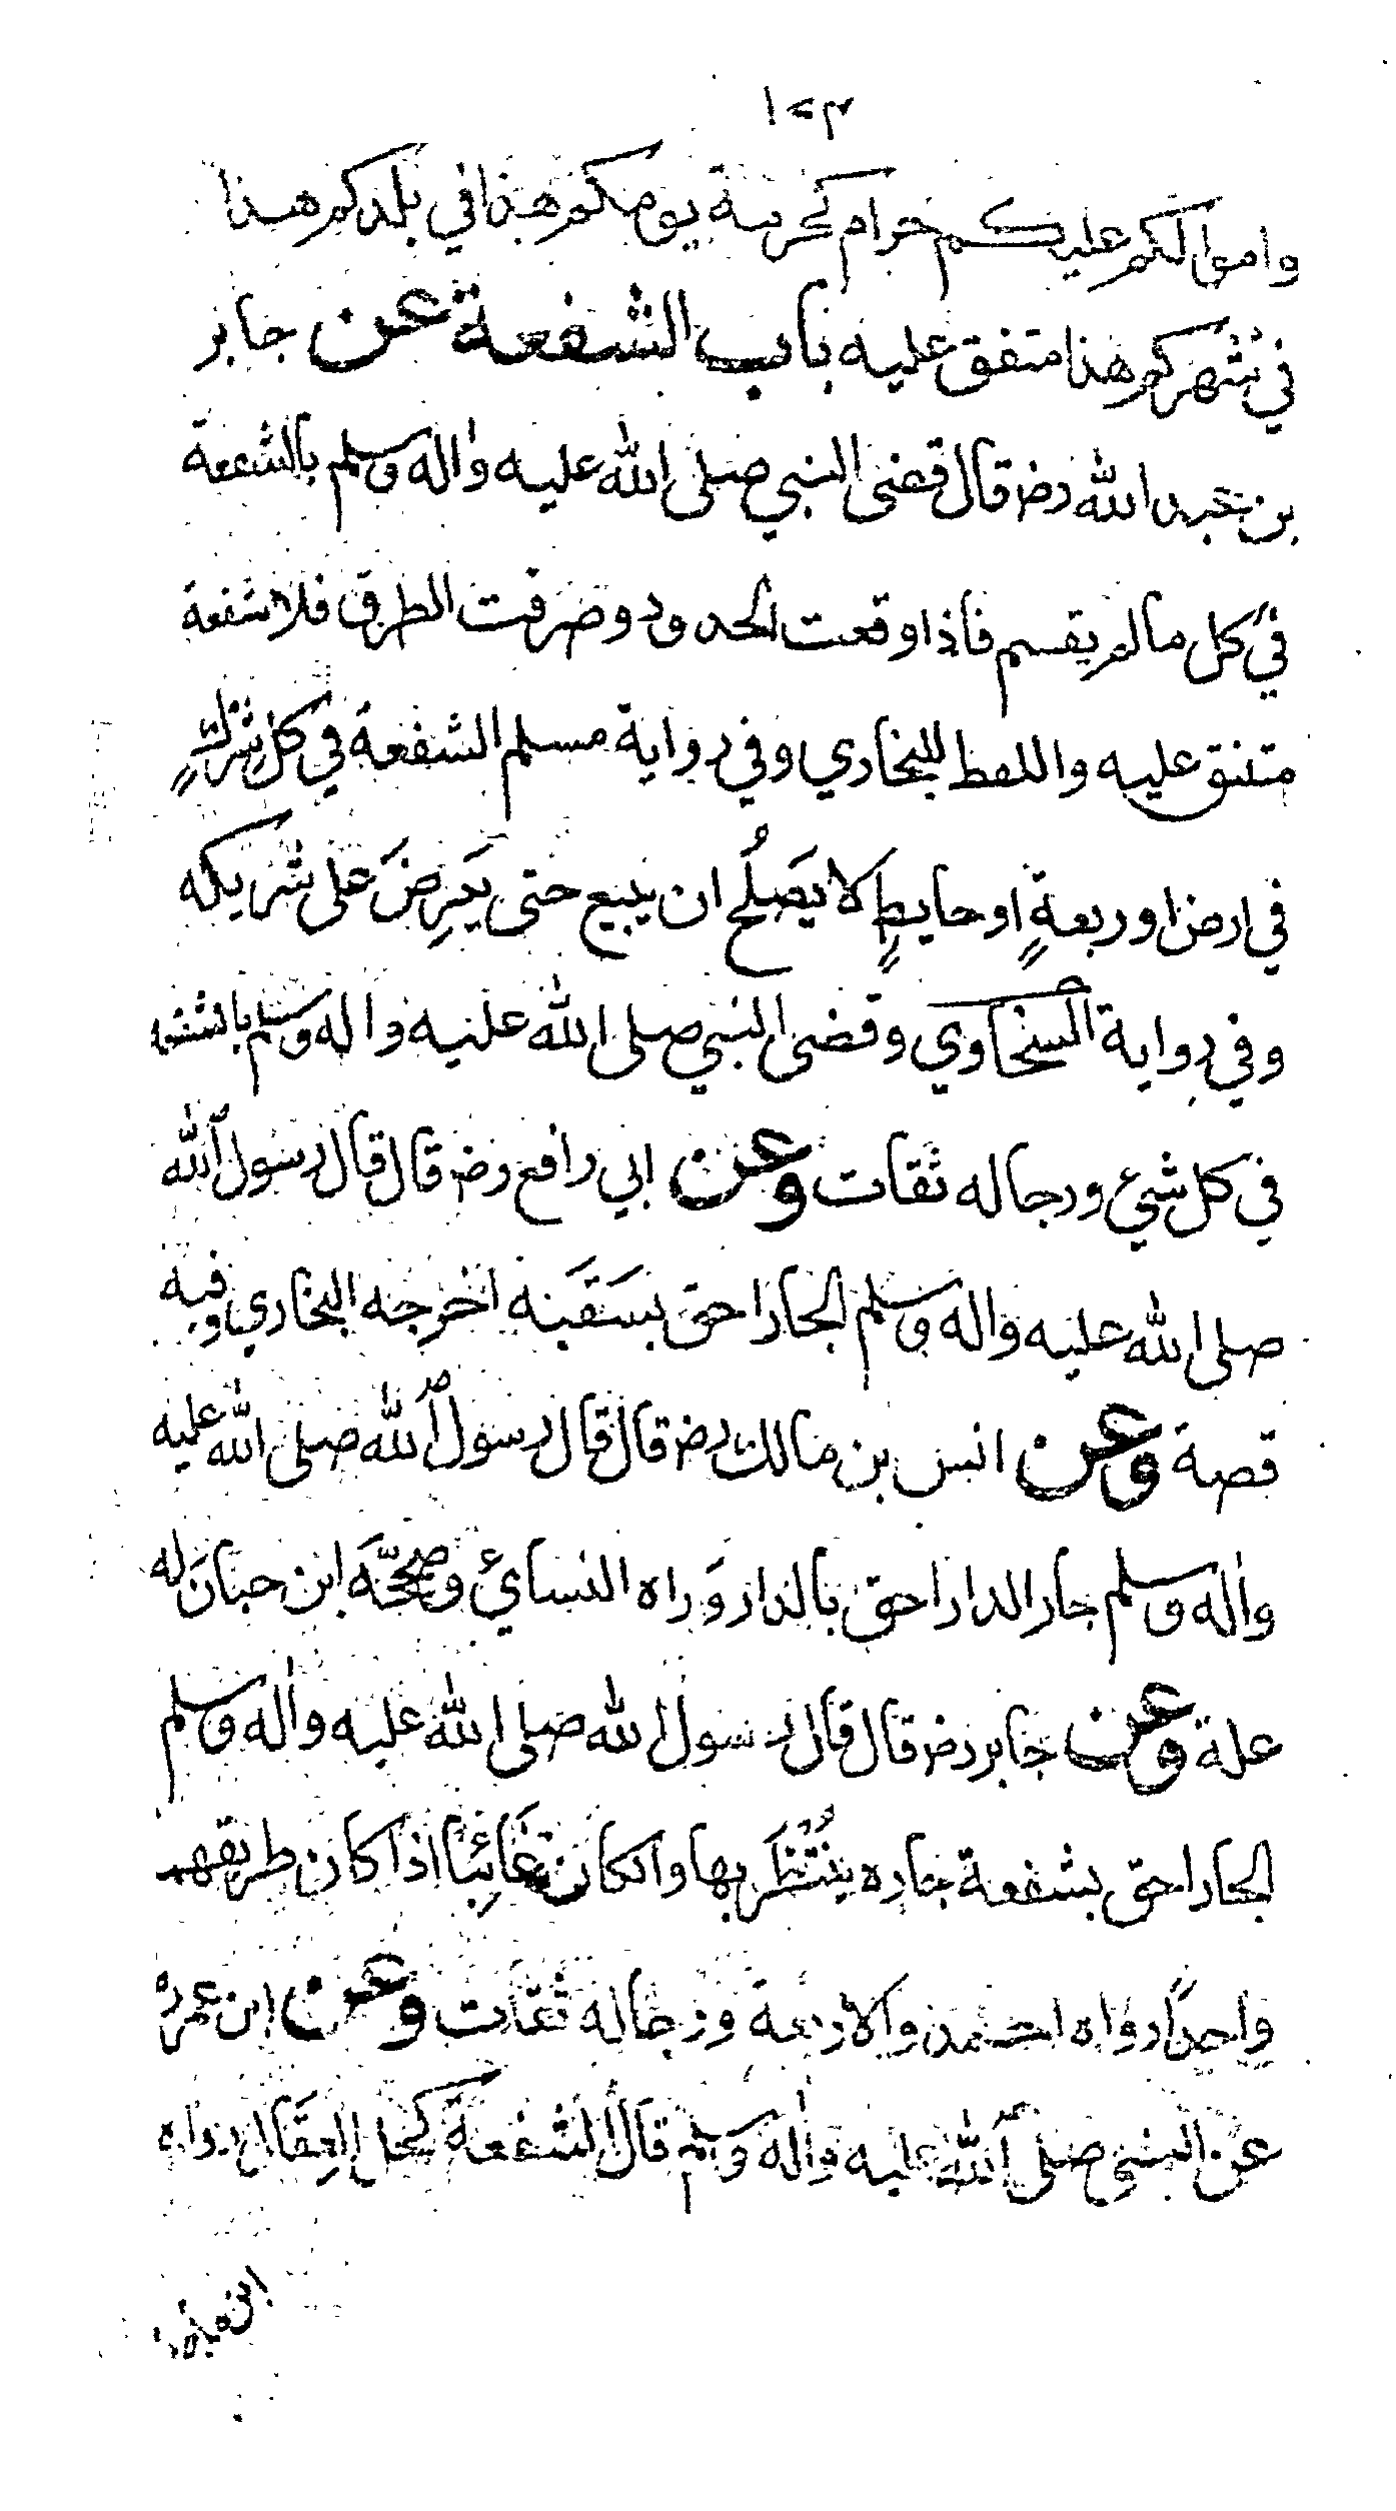 ١٢٣
واموالكم عليكم حرام كحرمة يومكم هذا في بلدكم هذا
في شهركم هذا متفق عليه باب الشفعة عن جابر
بن عبد الله رضه قال قضى النبي صلى الله عليه واله وسلم بالشفعة
في كل مالم يقسم فاذا وقعت الحدود وصرفت الطرق فلا شفعة
متفق عليه واللفظ للبخاري وفي رواية مسلم الشفعة في كل شركٍ
في ارض او ربعةٍ او حايطٍ لا يَصلُح ان يبيع حتى يَعرِضَ على شريكه
وفي رواية السخاوي وقضى النبي صلى الله عليه واله وسلم بالشفعة
في كل شيء ورجاله ثقات وعن ابي رافع رضه قال قال رسول الله
صلى الله عليه واله وسلم الجار احق بسَقَبه اخرجه البخاري وفيه
قصة وعن انس بن مالك رضه قال قال رسول الله صلى الله عليه
واله وسلم جار الدار احق بالدار وَراه النسائ وصححَّه ابن حبانَ له
علة وعن جابر رضه قال قال رسول الله صلى الله عليه واله وسلم
الجار احق بشفعة جاره يُنتَظَر بها وانكان غَائِبًا اذا كان طريقهم
واحدًا رواه احمد والاربعة ورجاله ثقات وعن ابن عمر رضه
عن النبي صلى الله عليه واله وسلم قال الشفعة كحل العِقَال رواه
ابن ماجه